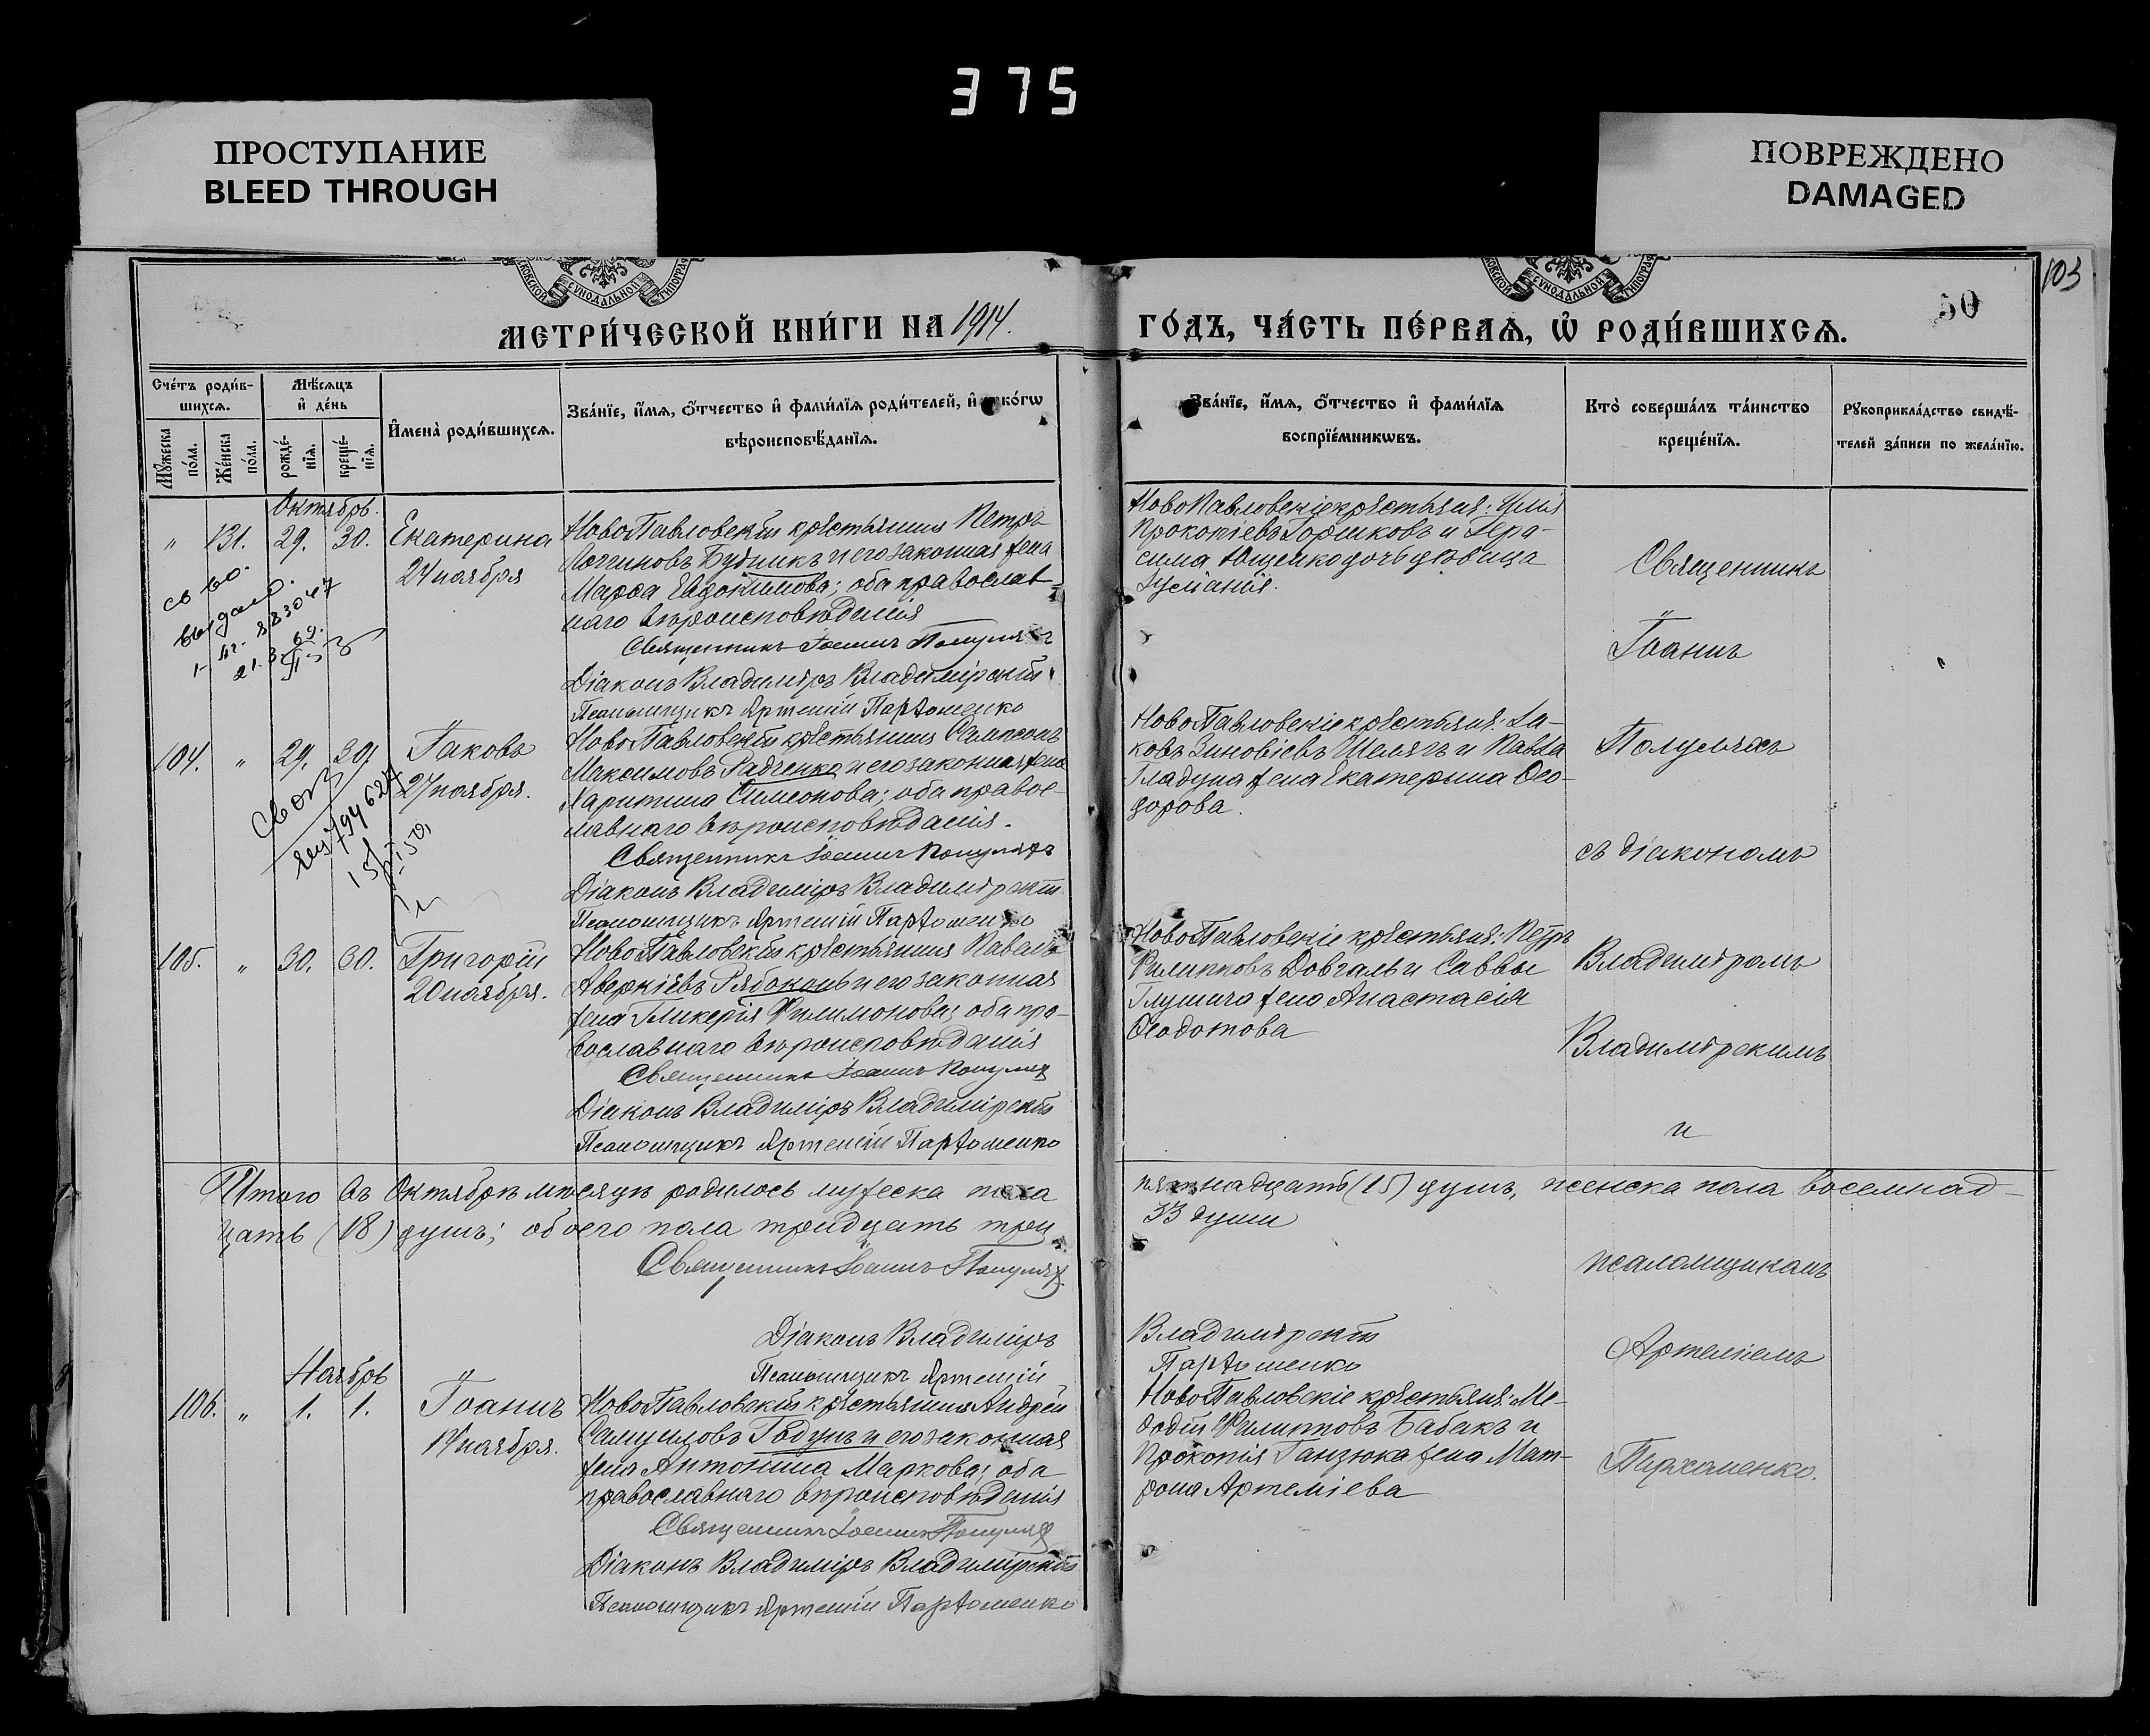 375
ПРОСТУПАНИЕ
BLEED THROUGH
ПОВРЕЖДЕНО
DAMAGED
103
50
МЕТРИ́ЧЕСКОЙ КНИ́ГИ НА 1914.
ГО́ДЪ, ЧА́СТЬ ПЕ́РВАѦ, Ѽ РОДИ́ВШИХСѦ.
Сче́тъ роди́в-
шихсѧ.
Мꙋ́жеска по́ла.
Же́нска по́ла.
Мѣ́сѧцъ
и҆ де́нь
рожде́-
нїѧ.
креще́-
нїѧ.
И҆мена̀ роди́вшихсѧ.
Зва́нїе, и҆́мѧ, ѻ҆́тчество и҆ фами́лїѧ роди́телей, и҆ ко́гѡ
вѣроисповѣ́данїѧ.
Зва́нїе, и҆́мѧ, ѻ҆́тчество и҆ фами́лїѧ
воспрїе́мникѡвъ.
Кто̀ соверша́лъ та́инство
креще́нїѧ.
Рꙋкоприкла́дство свидѣ́-
телей за́писи по жела́нїю.
Октябрь.
" 131. 29. 30. Екатерина
24 ноября
выдано.
НовоПавловскій крестьянинъ Петръ
Логгиновъ Будникъ и его законная жена
Марѳа Евдокимова; оба православ-
наго вѣроисповѣданія
Священникъ Іоаннъ Полулях
Діаконъ Владиміръ Владимірскій
Псаломщикъ Артемій Пархоменко
НовоПавловскіе крестьяне: Илія
Прокопіевъ Горшковъ и Гера-
сима Ющенко дочь дѣвица
104. " 29. 30. Іаковъ
27 ноября.
НовоПавловскій крестьянинъ Сампсонъ
Максимовъ Радченко и его законная жена
Харитина Симеонова; оба правос-
лавнаго вѣроисповѣданія.
Священникъ Іоаннъ Полуляхъ
Діаконъ Владиміръ Владимірскій
Псаломщикъ Артемій Пархоменко
НовоПавловскіе крестьяне: Іа-
ковъ Зиновіевъ Шелягъ и Павла
Гладуна жена Екатерина Ѳео-
дорова.
105. " 30. 30. Григорій
20 ноября.
НовоПавловскій крестьянинъ Павелъ
Аверкіевъ Рябоконь и его законная
жена Гликерія Филимонова; оба пра-
вославнаго вѣроисповѣданія
Священникъ Іоаннъ Полулях
Діаконъ Владиміръ Владимірскій
Псаломщикъ Артемій Пархоменко
НовоПавловскіе крестьяне: Петръ
Филипповъ Довгаль и Саввы
жена Анастасія
Ѳеодотова
Священникъ
Іоаннъ
Полуляхъ
съ діакономъ
Владиміромъ
Владимірскимъ
и
псаломщикомъ
Артеміемъ
Пархоменко.
Итого въ Октябрѣ мѣсяцѣ родилось мужеска пола пятнадцать (15) душъ, женска пола восемнад-
цать (18) душъ; обоего пола тридцать три 33 души
Священникъ Іоаннъ Полулях
Діаконъ Владиміръ Владимірскій
Псаломщикъ Артемій Пархоменко
Ноябрь
106. " 1. 1. Іоаннъ
14 ноября.
НовоПавловскій крестьянинъ Андрей
Самуиловъ Гадунъ и его законная
жена Антонина Маркова; оба
православнаго вѣроисповѣданія
Священникъ Іоаннъ Полулях
Діаконъ Владиміръ Владимірскій
Псаломщикъ Артемій Пархоменко
НовоПавловскіе крестьяне: Ме-
ѳодій Филипповъ Бабакъ и
Прокопія Ганзюка жена Мат-
рона Артеміева